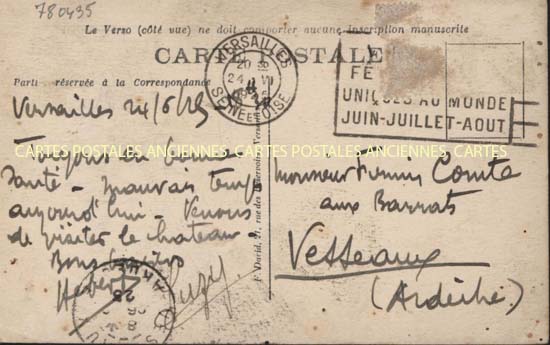 780435
Le Verso (côté vue) ne doit comporter aucune inscription manuscrite
CARTE POSTALE
Partie réservée à la Correspondance
VERSAILLES
SEINE ET OISE
FÊ
UNIQUES AU MONDE
JUIN-JUILLET-AOUT
CARTES POSTALES ANCIENNES CARTES POSTALES ANCIENNES CARTES
Versailles 24/6/25
Toujours en bonne
santé - mauvais temps
aujourd'hui - Venons
de visiter le château -
Bons baisers
Monsieur Comte
aux Barrats
Vesseaux
(Ardèche)